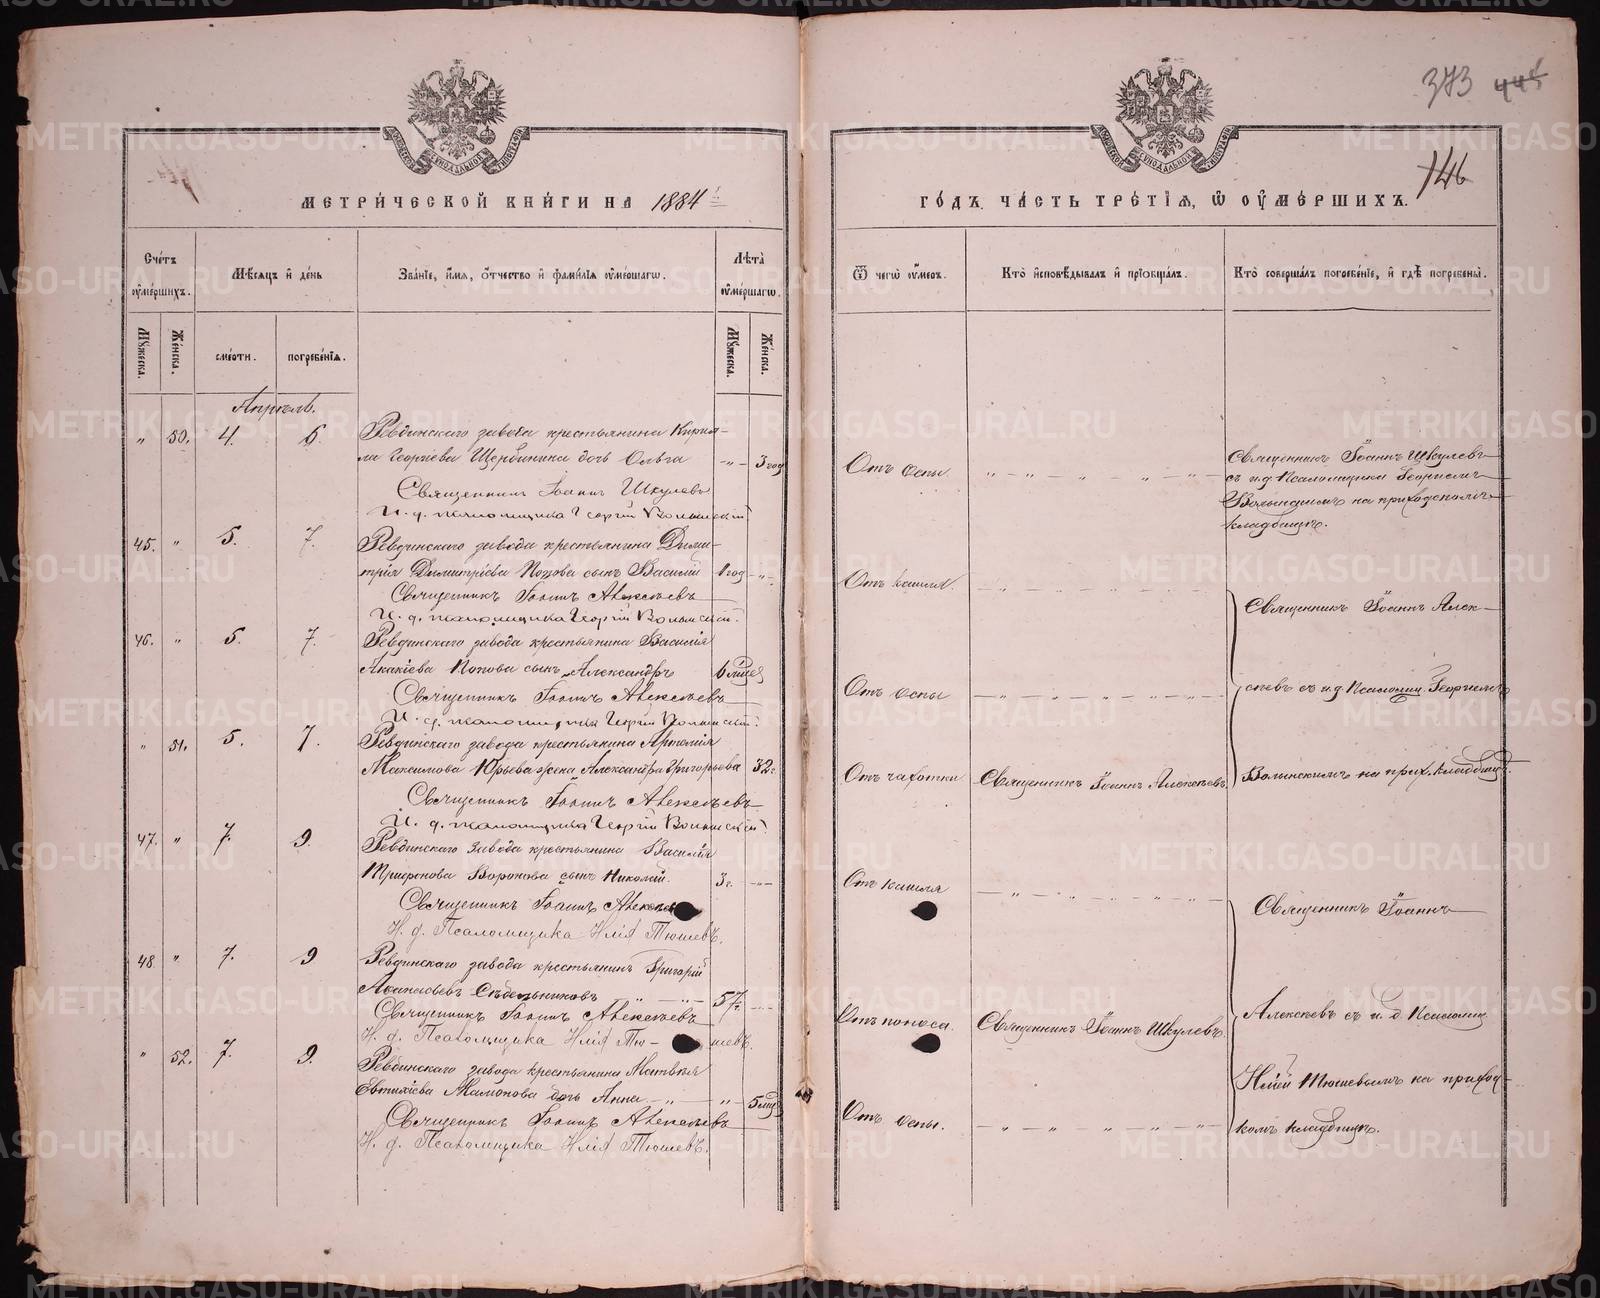 373 445
146
МЕТРИЧЕСКОЙ КНИГИ НА 1884 ГОДЪ, ЧАСТЬ ТРЕТІЯ, Ѡ ОУМЕРШИХЪ.
Счетъ оумершихъ.
Мѣсяцъ и день
Званіе, имя, отчество и фамилія оумершагѡ.
Лѣта оумершагѡ.
Ѿ чегѡ оумеръ.
Кто исповѣдывалъ и пріобщалъ.
Кто совершалъ погребеніе, и гдѣ погребены.
Мужеска.
Женска.
смерти.
погребенія.
Мужеска.
Женска.
Апрель.
„ 50. 4. 6. Ревдинскаго завода крестьянина Кирил-
ла Георгіева Щербинина дочь Ольга „ 3 год
Отъ оспы
Священникъ Іоаннъ Шкулевъ
съ и.д. Псаломщика Георгіемъ
Волынскимъ на приходскомъ
кладбищѣ.
Священникъ Іоаннъ Шкулевъ
И. д. псаломщика Георгій Волынскій
45. „ 5. 7. Ревдинскаго завода крестьянина Дими-
трія Димитріева Попова сынъ Василій 1 год „
Отъ кашля
Священникъ Іоаннъ Алексѣевъ
И. д. псаломщика Георгій Волынскій.
46. „ 5. 7. Ревдинскаго завода крестьянина Василія
Акакіева Попова сынъ Александръ
Отъ оспы
Священникъ Іоаннъ Алексѣевъ
И. д. псаломщика Георгій Волынскій.
„ 51. 5. 7. Ревдинскаго завода крестьянина Артемія
Максимова Юрьева жена Александра Григорьева 32 г.
Отъ чахотки Священникъ Іоаннъ Алексѣевъ.
Священникъ Іоаннъ Алек-
сѣевъ съ и.д. Псаломщ. Георгіемъ
Волынскимъ на прих. кладбищѣ.
Священникъ Іоаннъ Алексѣевъ
И. д. псаломщика Георгій Волынскій.
47. „ 7. 9. Ревдинскаго завода крестьянина Василія
Трифонова Воронова сынъ Николай. 3 г. „
Отъ кашля
Священникъ Іоаннъ Алексѣевъ
И. д. Псаломщика Илія Тюшевъ.
48 „ 7. 9 Ревдинскаго завода крестьянинъ Григорій
Аѳанасьевъ Сѣдельниковъ 57 г.
Отъ поноса. Священникъ Іоаннъ Шкулевъ.
Священникъ Іоаннъ Алексѣевъ
И. д. Псаломщика Илія Тюшевъ.
„ 52. 7. 9. Ревдинскаго завода крестьянина Матвѣя
Евтихіева Мамонова дочь Анна „ 5 мцъ
Отъ оспы.
Священникъ Іоаннъ
Алексѣевъ съ и. д. Псаломщ.
Иліей Тюшевымъ на приход-
комъ кладбищѣ.
Священникъ Іоаннъ Алексѣевъ
И. д. Псаломщика Илія Тюшевъ.
METRIKI.GASO-URAL.RU